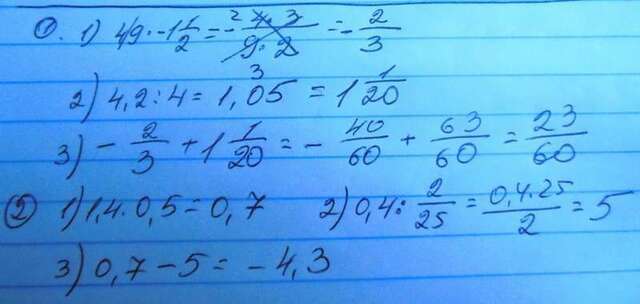 ①. 1) 4/9 · -1 1/2 = - (4 · 3)/(9 · 2) = - 2/3
2) 4,2 : 4 = 1,05 = 1 1/20
3) - 2/3 + 1 1/20 = - 40/60 + 63/60 = 23/60
② 1) 1,4 · 0,5 = 0,7 2) 0,4 : 2/25 = (0,4 · 25)/2 = 5
3) 0,7 - 5 = - 4,3